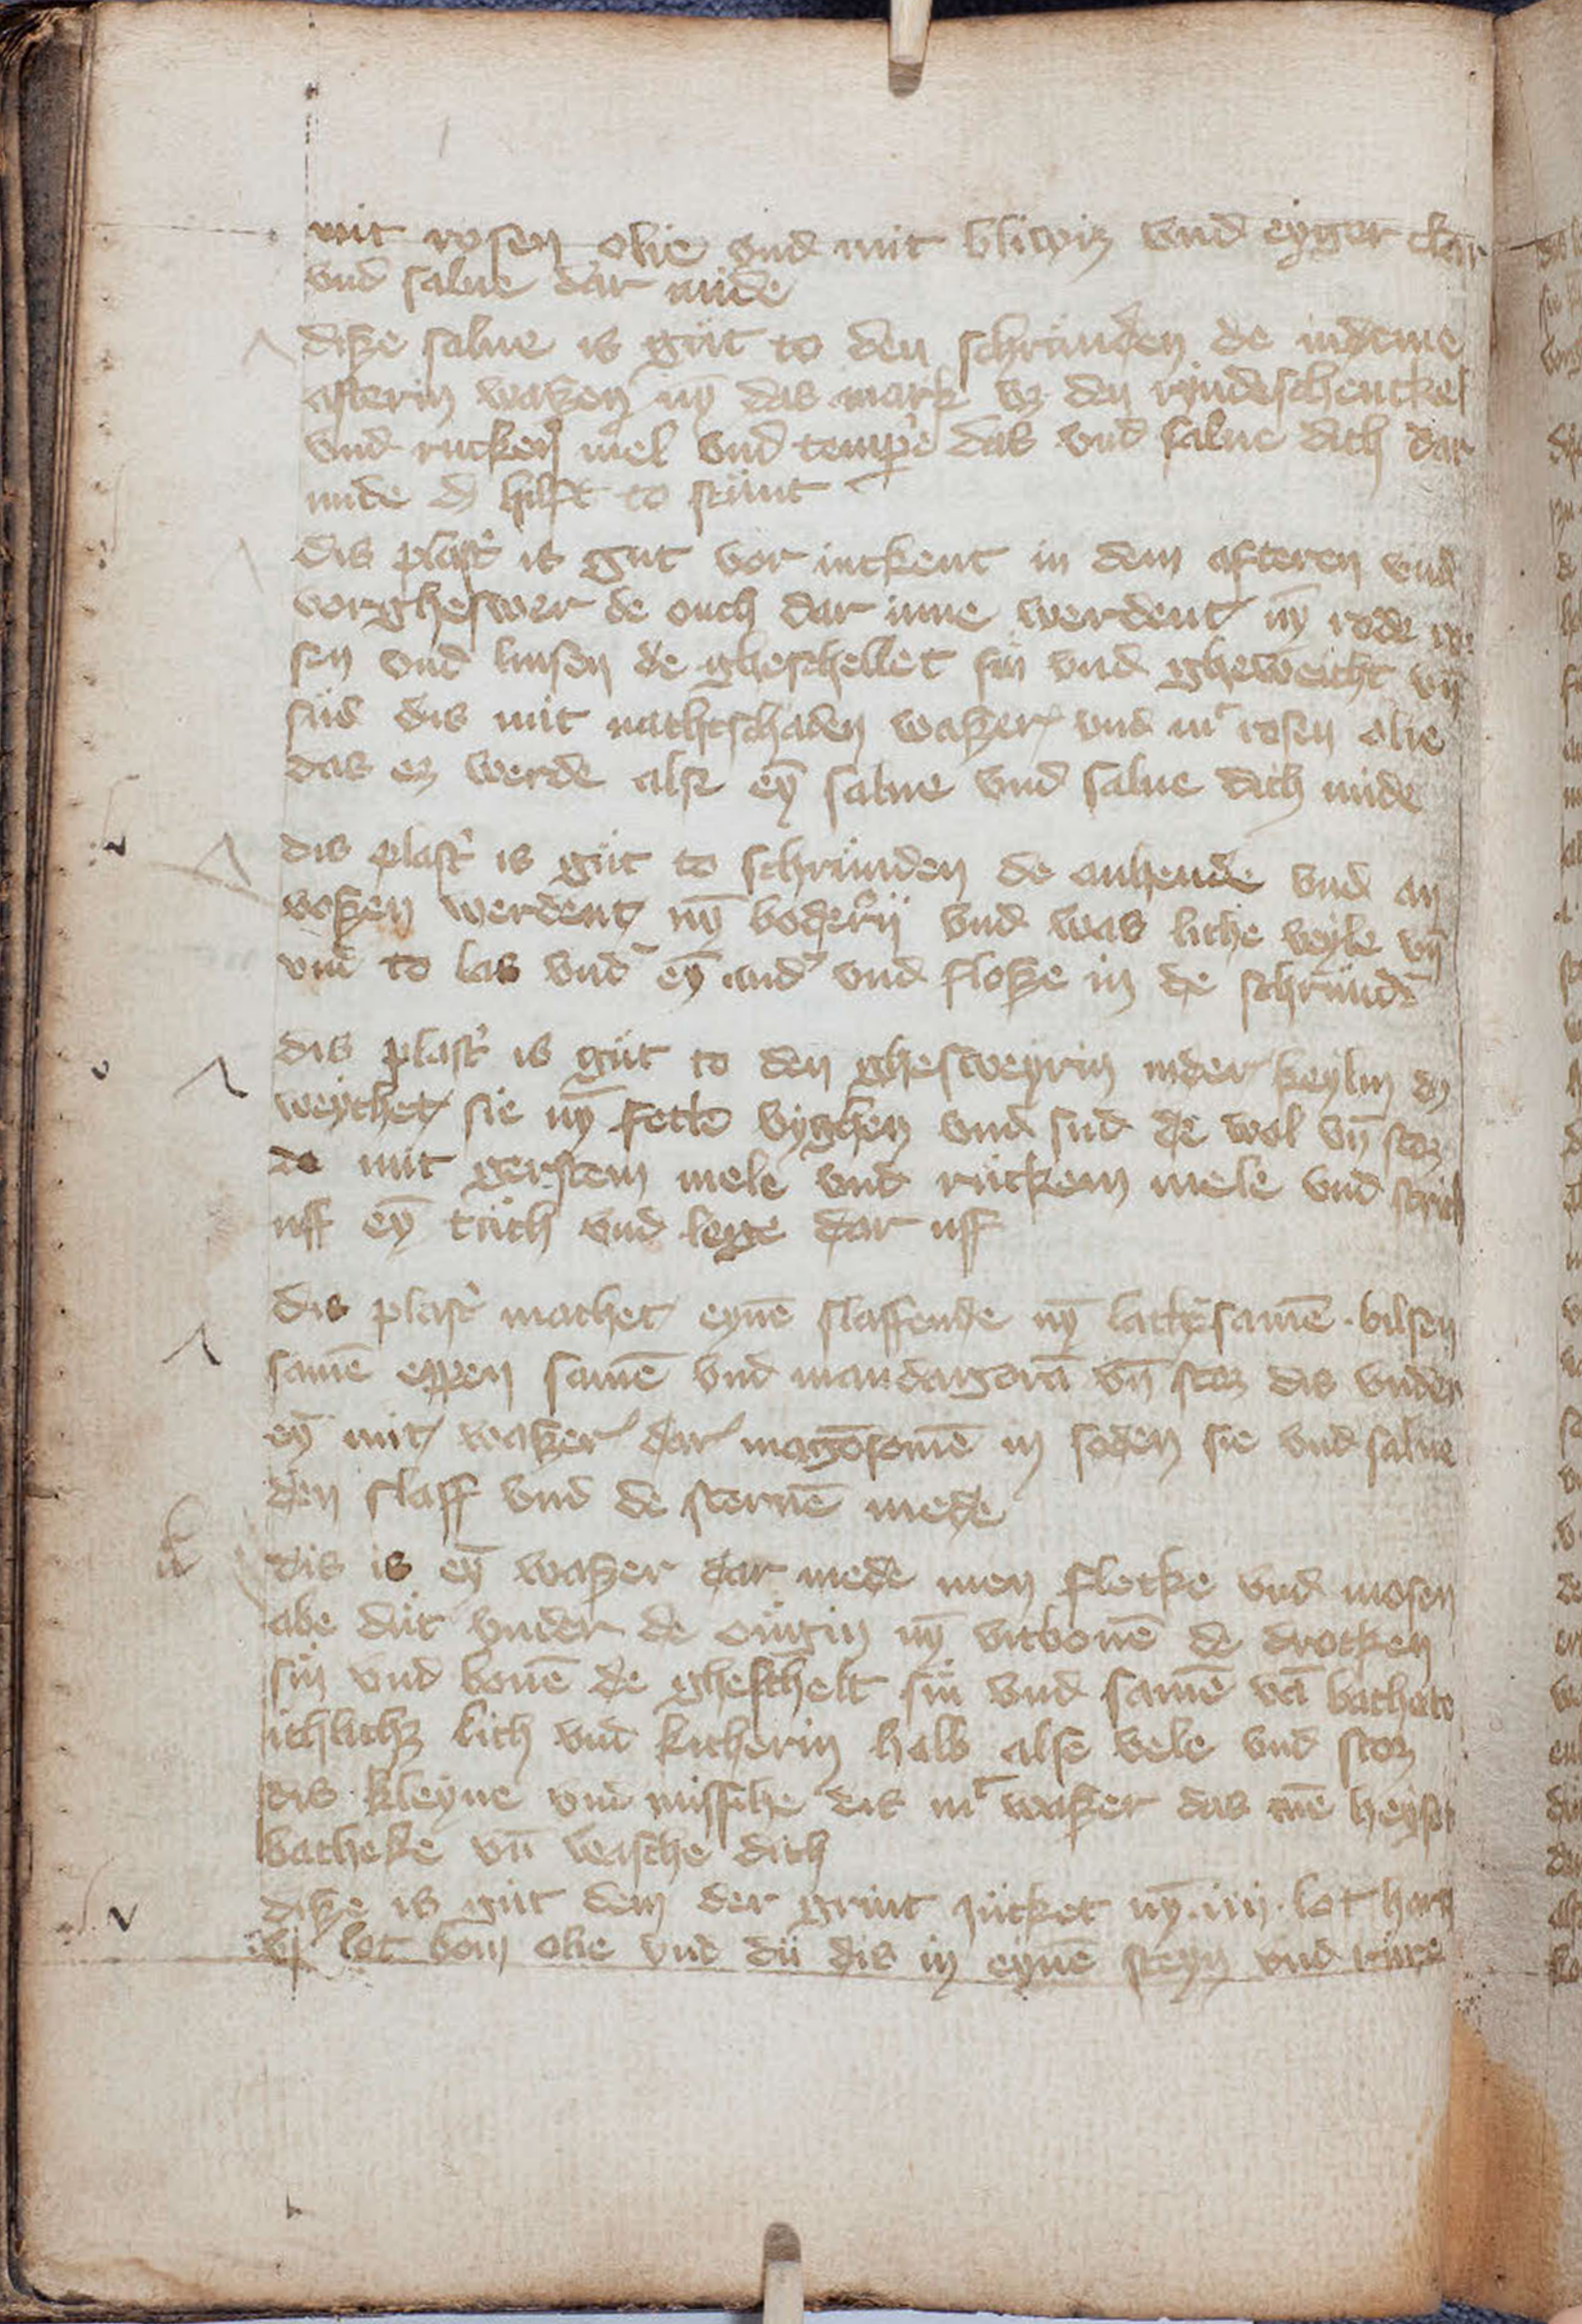 mit rosen olie vnd mit bliwiz vnd eyger clar
vnd salue dar mide
disze salue is gůt to den schrůnden de in deme
afterin waszen nȳ das mark vz den ryndeschenckel
vnd rucken mel vnd temp̄e das vnd salue dich dar
mide dz hilft to stůnt
dis plast̉ is gut vor iuckent in dem afteren vnd
vorgheswer de ouch dar inne werdent nȳ rode ro
sen vnd linsen de gheschellet sin vnd gheweicht vn̄
sůd dis mit nachtschaden waszer vnd mt rosen olie
das ez werde alse eȳ salue vnd salue dich mide
dis plast̉ is gůt to schrůnden de an hende vnd an
voszen werdent nȳ vnd was liche veyle vn̄
vnd to las vnd̉ eȳ and̉ vnd flosze in de schrůnd̄
dis plast̉ is gůt to den ghesweyrin in der keylin dz
weychet sie nȳ fette vyghen vnd sud de wol vn̄ stoz
de mit gerstem mele vnd růckem mele vnd strich
uff eȳ tůch vnd lege dar uff
dis plast̉ machet eynē slaffende nȳ samē · bilsen
samē eppen samē vnd mandagorā vn̄ stoz dis vnder
eȳ mit waszer dar magōsomē in soden sie vnd salue
den slaff vnd de sternē mede
dis is eȳ waszer dar mede men flecke vnd mosen
abe důt vnder de ougin nȳ vitbonē de drocken
sin vnd bonē de ghescheltt sin vnd samē vā
ichlichz lich vnd kicherin halb alse vele vnd stoz
dis kleyne vnd missche dis mt waszer das mē heyset
batheke vn̄ wasche dich
disze is gůt dem der grint jůcket nȳ · iiij · lot harz
vj lot bom olie vnd dů dis in eynē steyn vnd růre